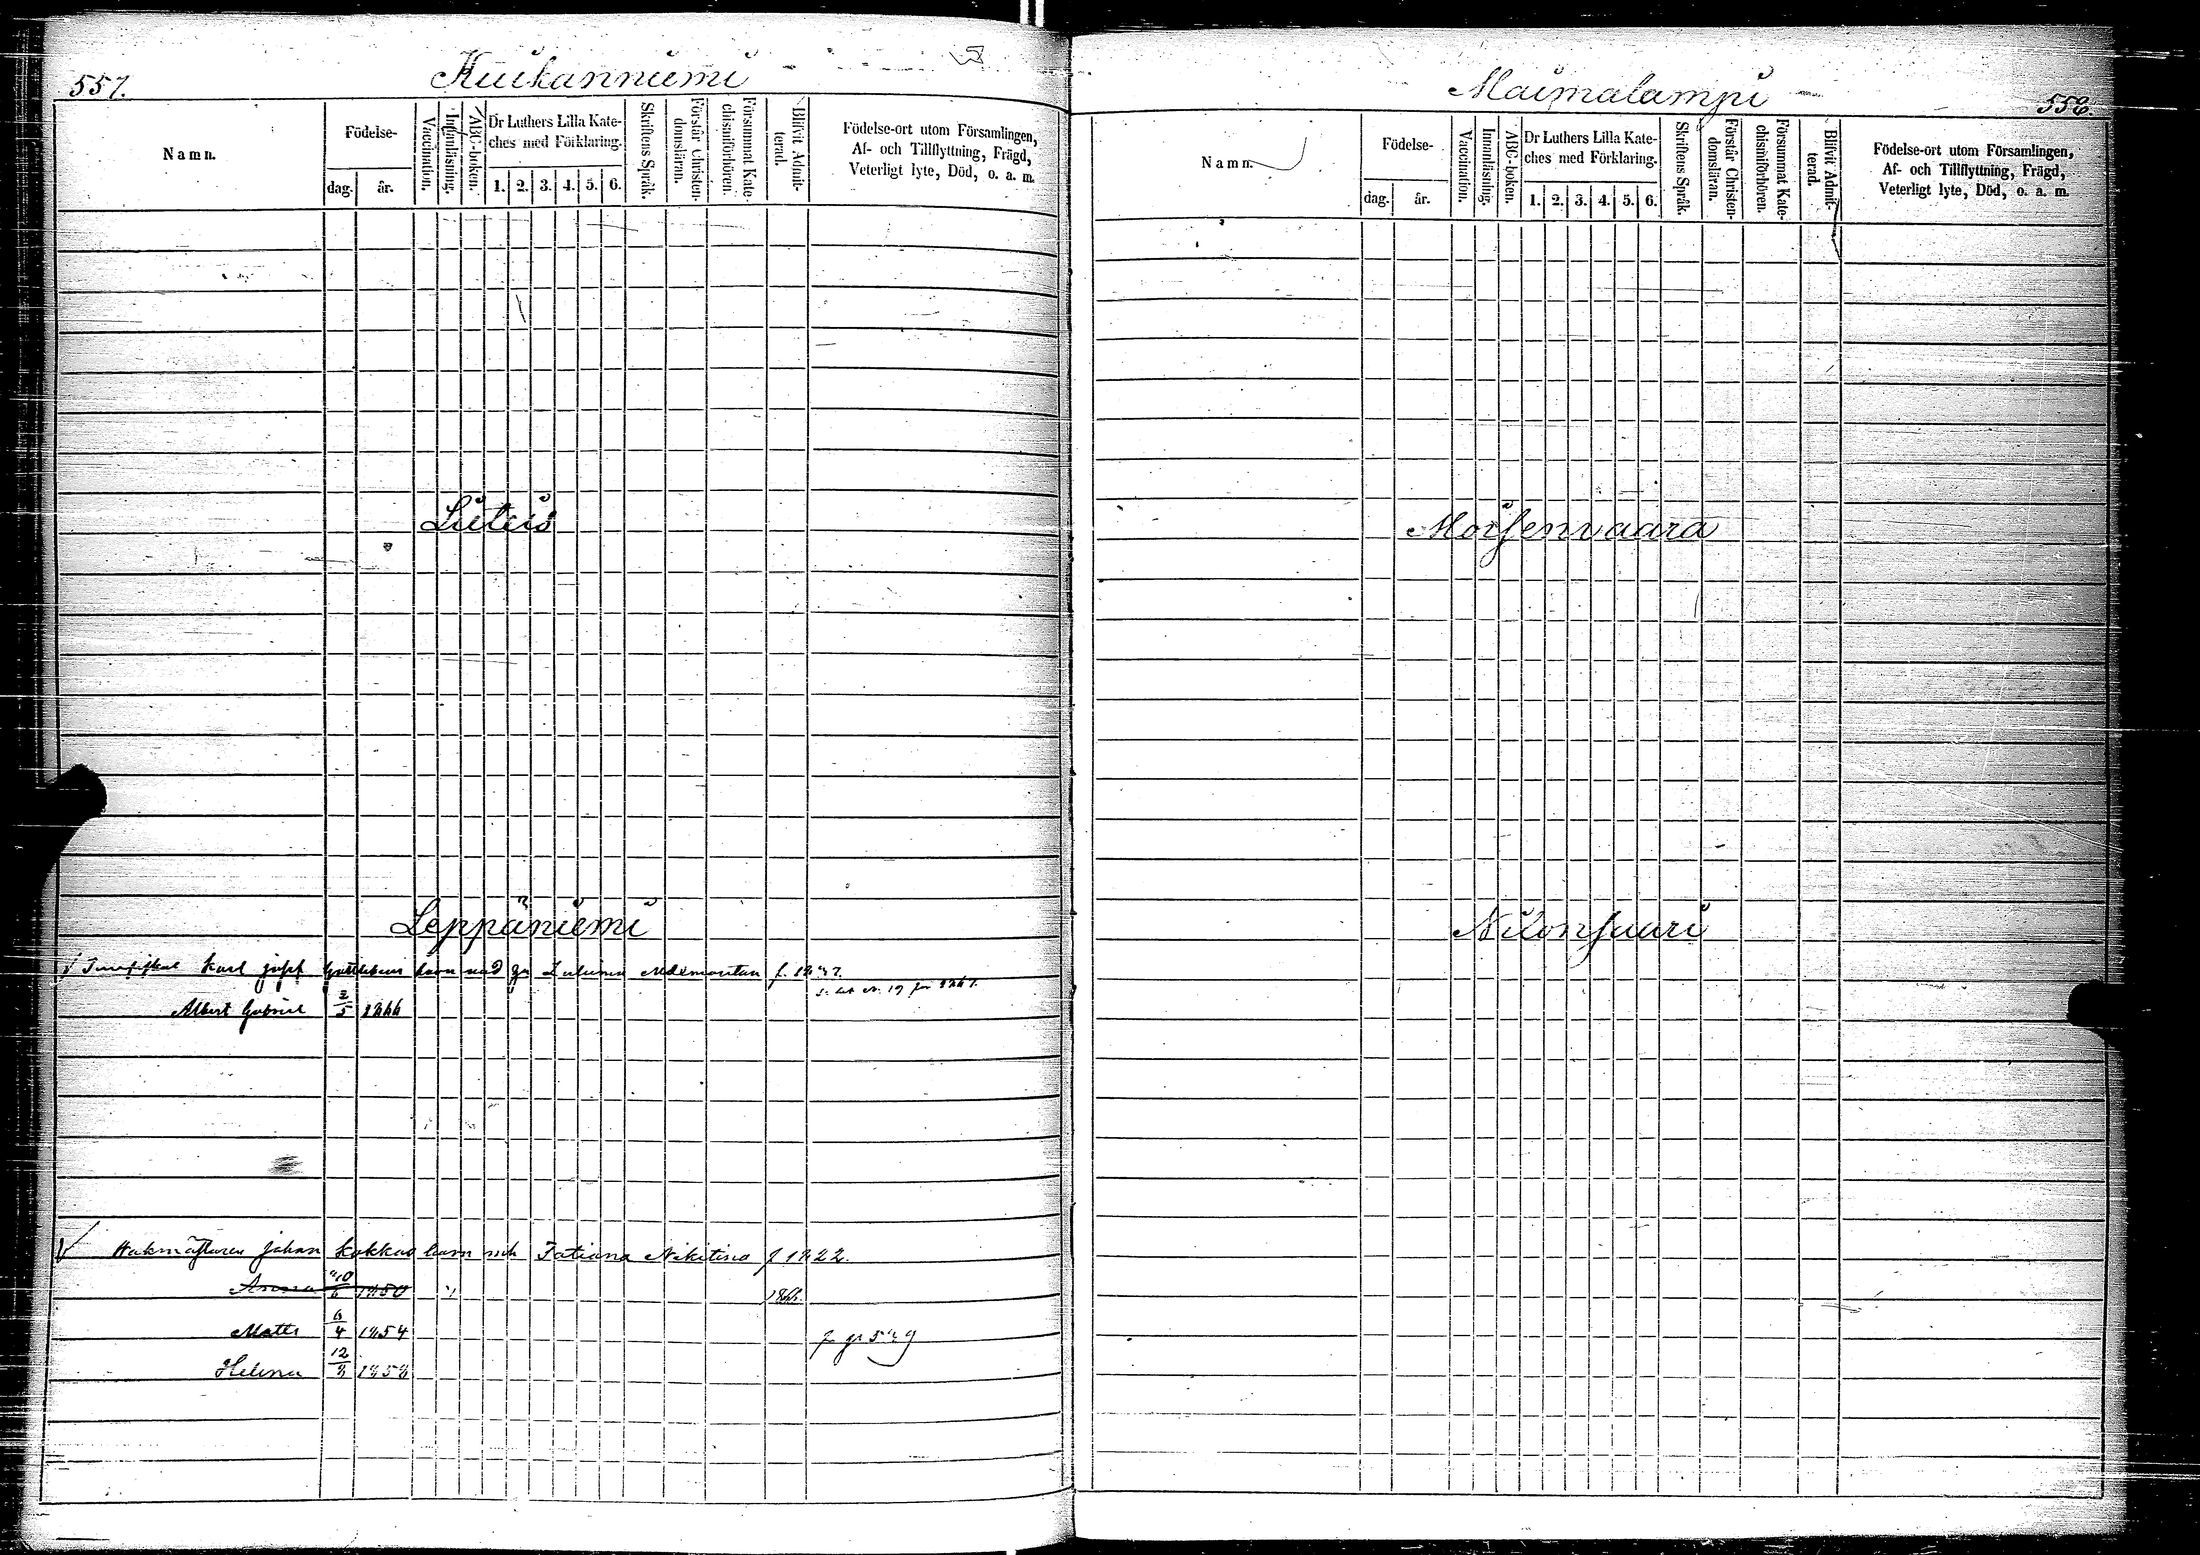 557.
Kuikanniemi
Namn.
Födelse-
dag.
år.
Vaccination.
Innanläsning.
ABC-boken.
Dr Luthers Lilla Kate-
ches med Förklaring.
1. 2. 3. 4. 5. 6.
Skriftens Språk.
Förstår Christen-
domsläran.
Försummat Kate-
chismiförhören.
Blifvit Admit-
terad.
Födelse-ort utom Församlingen,
Af- och Tillflyttning, Frägd,
Veterligt lyte, Död, o. a. m.
Lieteis
Leppäniemi
Karl barn med f.
Albert Gabriel 2/5 1866
Johan Kokkos barn med Tatiana Nikitina f 1822.
Anna 10/6 1850
Matts 6/4 1854
Helena 12/3 1858
Maimalampi
558.
Namn.
Födelse-
dag.
år.
Vaccination.
Innanläsning.
ABC-boken.
Dr Luthers Lilla Kate-
ches med Förklaring.
1. 2. 3. 4. 5. 6.
Skriftens Språk.
Förstår Christen-
domsläran.
Försummat Kate-
chismiförhören.
Blifvit Admit-
terad.
Födelse-ort utom Församlingen,
Af- och Tillflyttning, Frägd,
Veterligt lyte, Död, o. a. m.
Moisenvaara
Nilonsaari